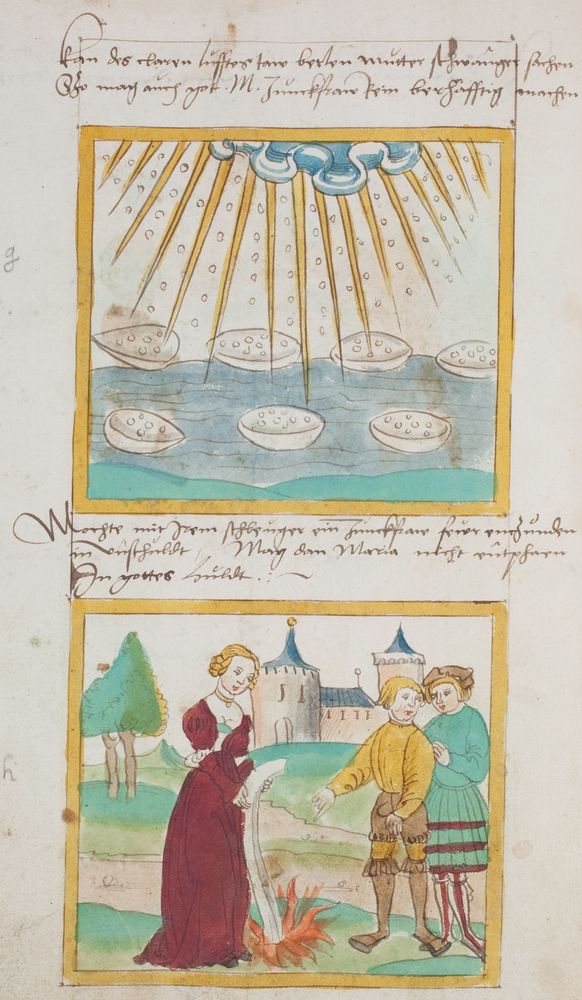 kan des claren lufftes taw berlen mutter schwanger machen
So mag auch got M. Junckfraw kein berhafftig machen
g
Mochte mit Irem schleuger ein Junckfraw fewr enzunden
in unschuldt / Mag dan Maria nicht entphaen
In gottes huldt .:~
h